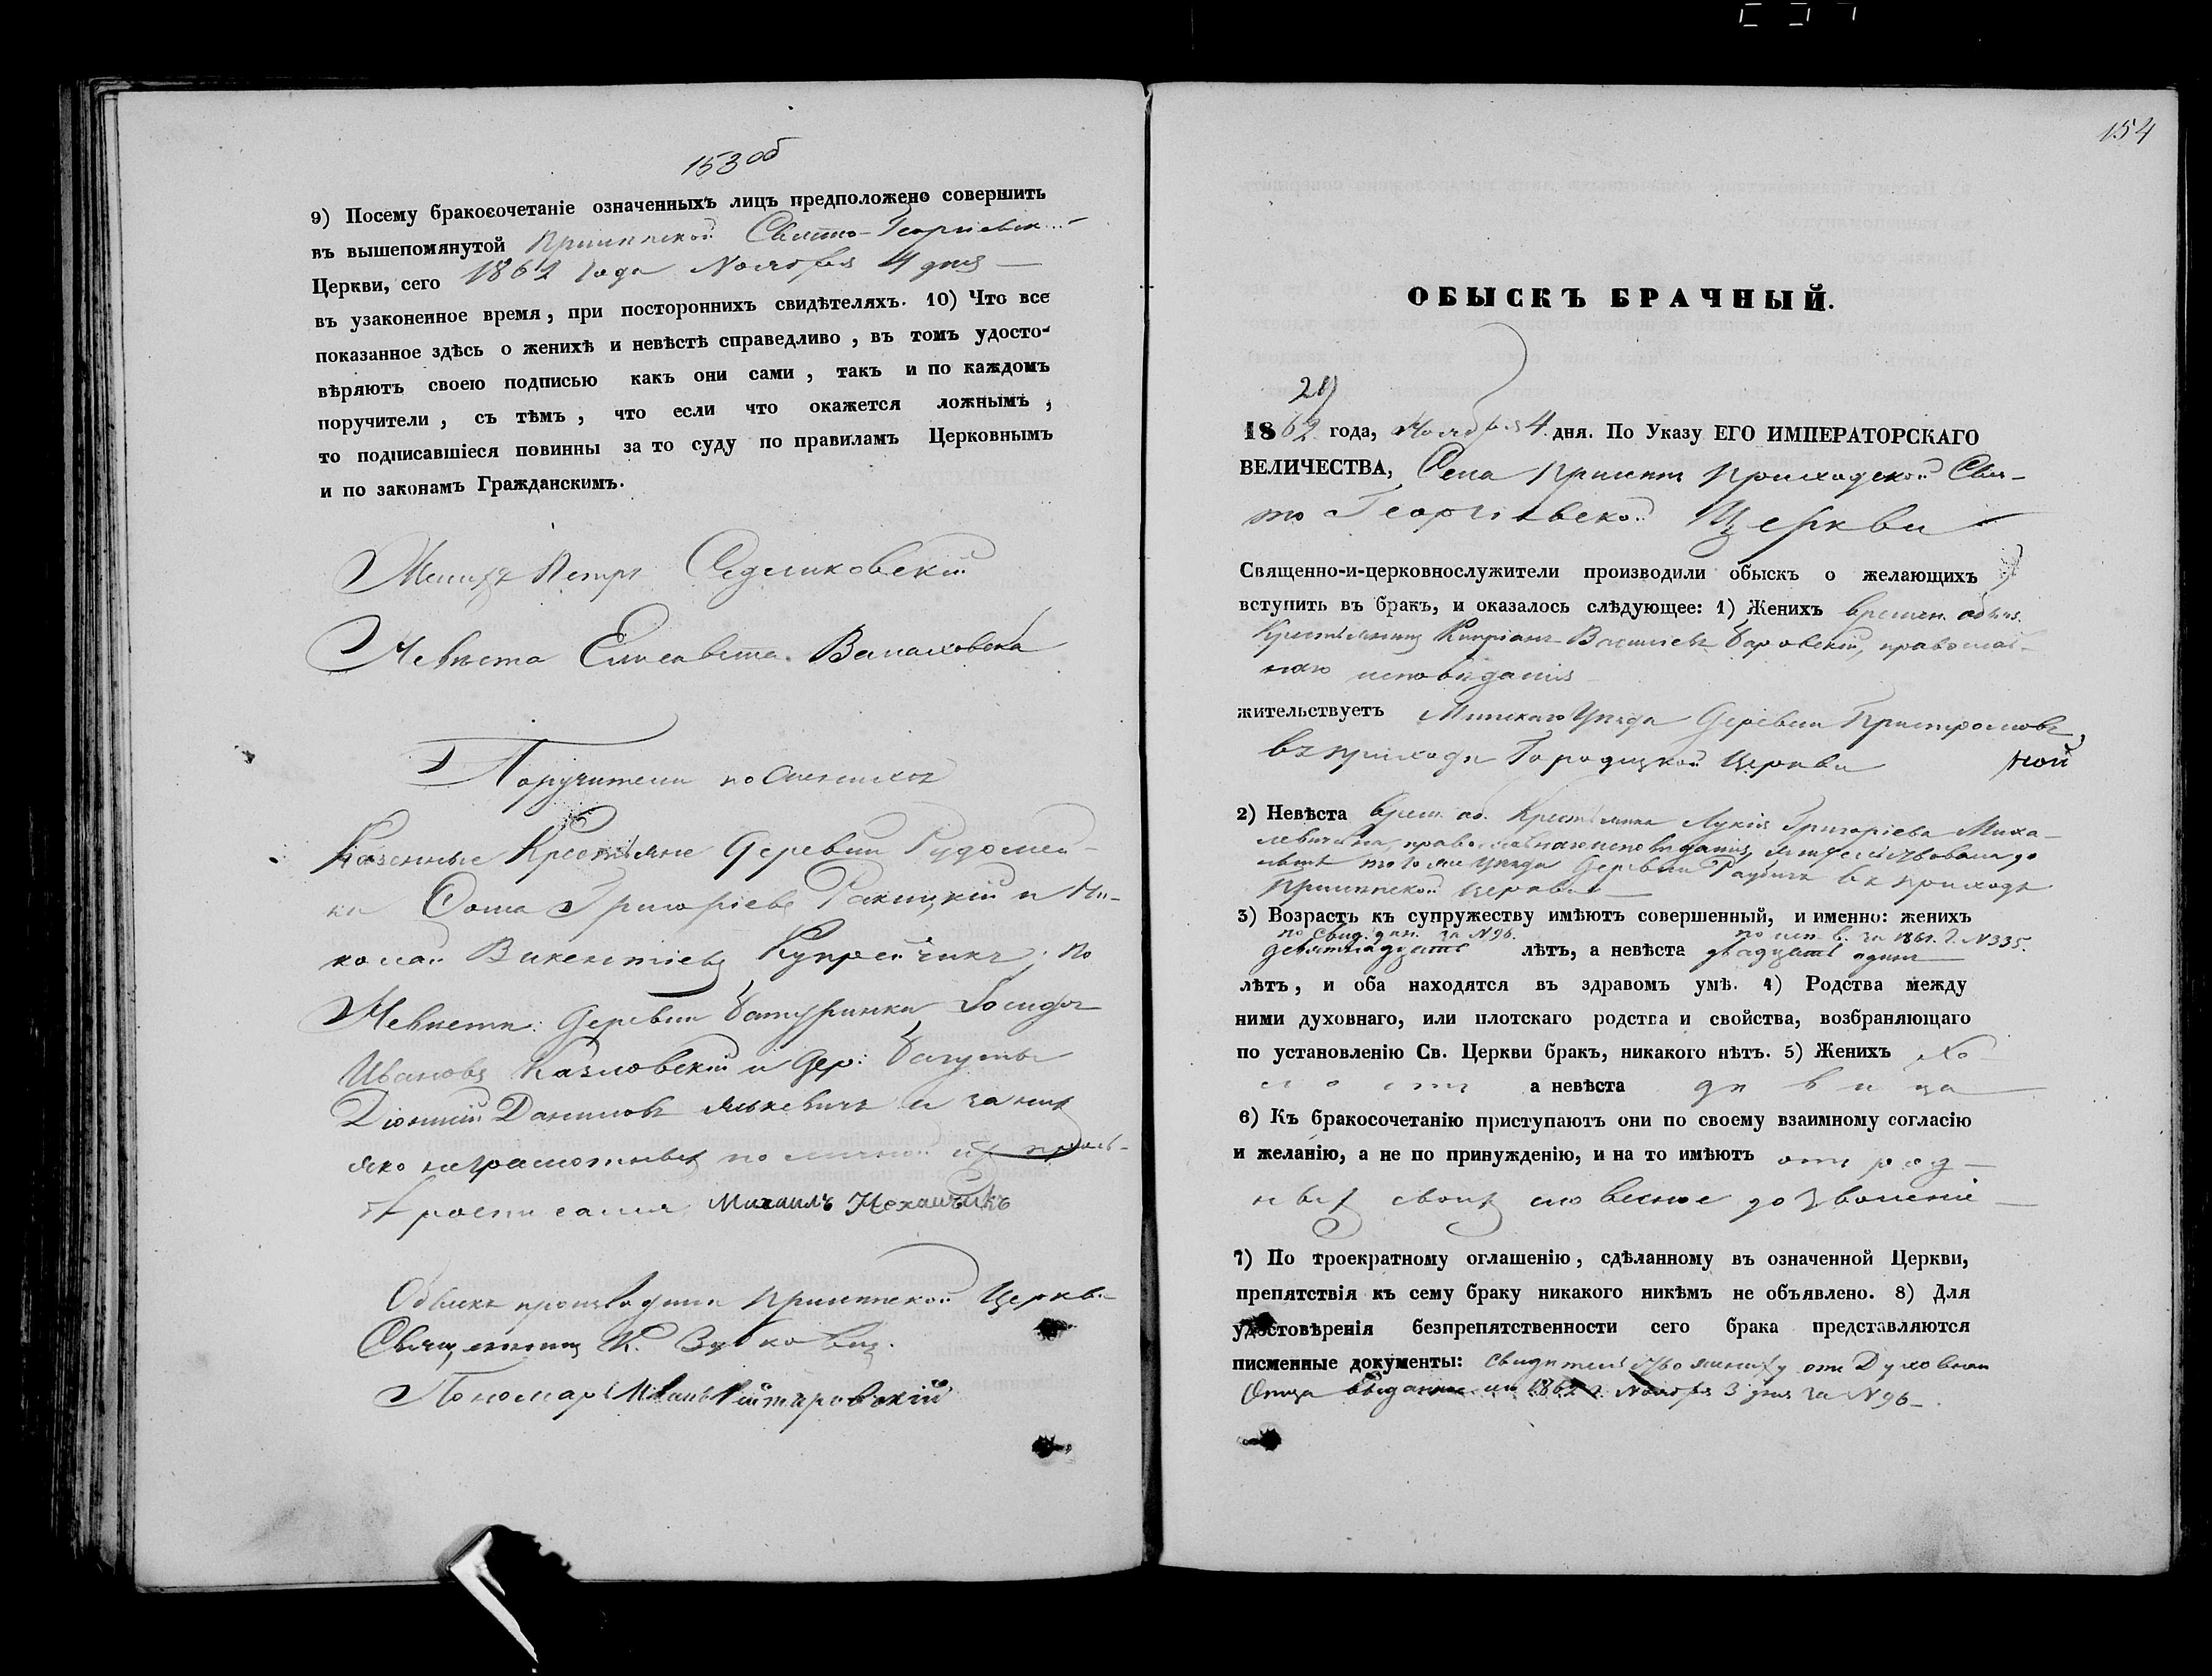 153 об
9) Посему бракосочетаніе означенныхъ лицъ предположено совершить
въ вышепомянутой Прилепской Свято-Георгіевск
Церкви, сего 1862 года Ноября 4 дня
въ узаконенное время, при постороннихъ свидѣтеляхъ. 10) Что все
показанное здѣсь о женихѣ и невѣстѣ справедливо, въ томъ удосто-
вѣряютъ своею подписью какъ они сами, такъ и по каждомъ
поручители, съ тѣмъ, что если что окажется ложнымъ,
то подписавшіеся повинны за то суду по правиламъ Церковнымъ
и по законамъ Гражданскимъ.
Женихъ Петръ
Невѣста Елисавета
Поручители по Женихѣ
Казенные Крестьяне Деревни Рудомей-
ки Фома Григоріевъ Ракицкій и Ни-
колай Викентіевъ Купрейчикъ; по
Невѣстѣ: Деревни Батуринки
Ивановъ Казловскій и дер:
Діонисій Даниловъ и за нихъ
яко неграмотныхъ по личной ихъ прось-
бѣ росписался Михаилъ Нехайчикъ
Обыскъ производили Прилепской Церкви
Священникъ К.
Пономарь
154
ОБЫСКЪ БРАЧНЫЙ.
29
1862 года, Ноября 4 дня. По Указу ЕГО ИМПЕРАТОРСКАГО
ВЕЛИЧЕСТВА, Села Прилепъ Приходской Свя-
то Георгіевской Церкви
Священно-и-церковнослужители производили обыскъ о желающихъ
вступить въ бракъ, и оказалось слѣдующее: 1) Женихъ времен. обяз.
Крестьянинъ Кипріанъ Васильевъ Баровскій, православ-
наго исповѣданія
жительствуетъ Минскаго Уѣзда Деревни
въ приходѣ Городецкой Церкви
2) Невѣста врем. об. Крестьянка Лукія Григоріева Миха-
левичева, православнаго исповѣданія, жительствовала до
нынѣ того же уѣзда Деревни Раубичъ въ приходѣ
Прилепской церкви
3) Возрастъ къ супружеству имѣютъ совершенный, и именно: женихъ
по свид. дан. за N 96. по исп. в. за 1861. г. N 335.
девятнадцать лѣтъ, а невѣста двадцать одинъ
лѣтъ, и оба находятся въ здравомъ умѣ. 4) Родства между
ними духовнаго, или плотскаго родства и свойства, возбраняющаго
по установленію Св. Церкви бракъ, никакого нѣтъ. 5) Женихъ Хо
лостъ а невѣста дѣвица
6) Къ бракосочетанію приступаютъ они по своему взаимному согласію
и желанію, а не по принужденію, и на то имѣютъ отъ род-
ныхъ своихъ словесное дозволеніе
7) По троекратному оглашенію, сдѣланному въ означенной Церкви,
препятствія къ сему браку никакого никѣмъ не объявлено. 8) Для
удостовѣренія безпрепятственности сего брака представляются
писменные документы: свидѣтельство жениху отъ Духовнаго
Отца 1862 г. Ноября 3 дня за N 96